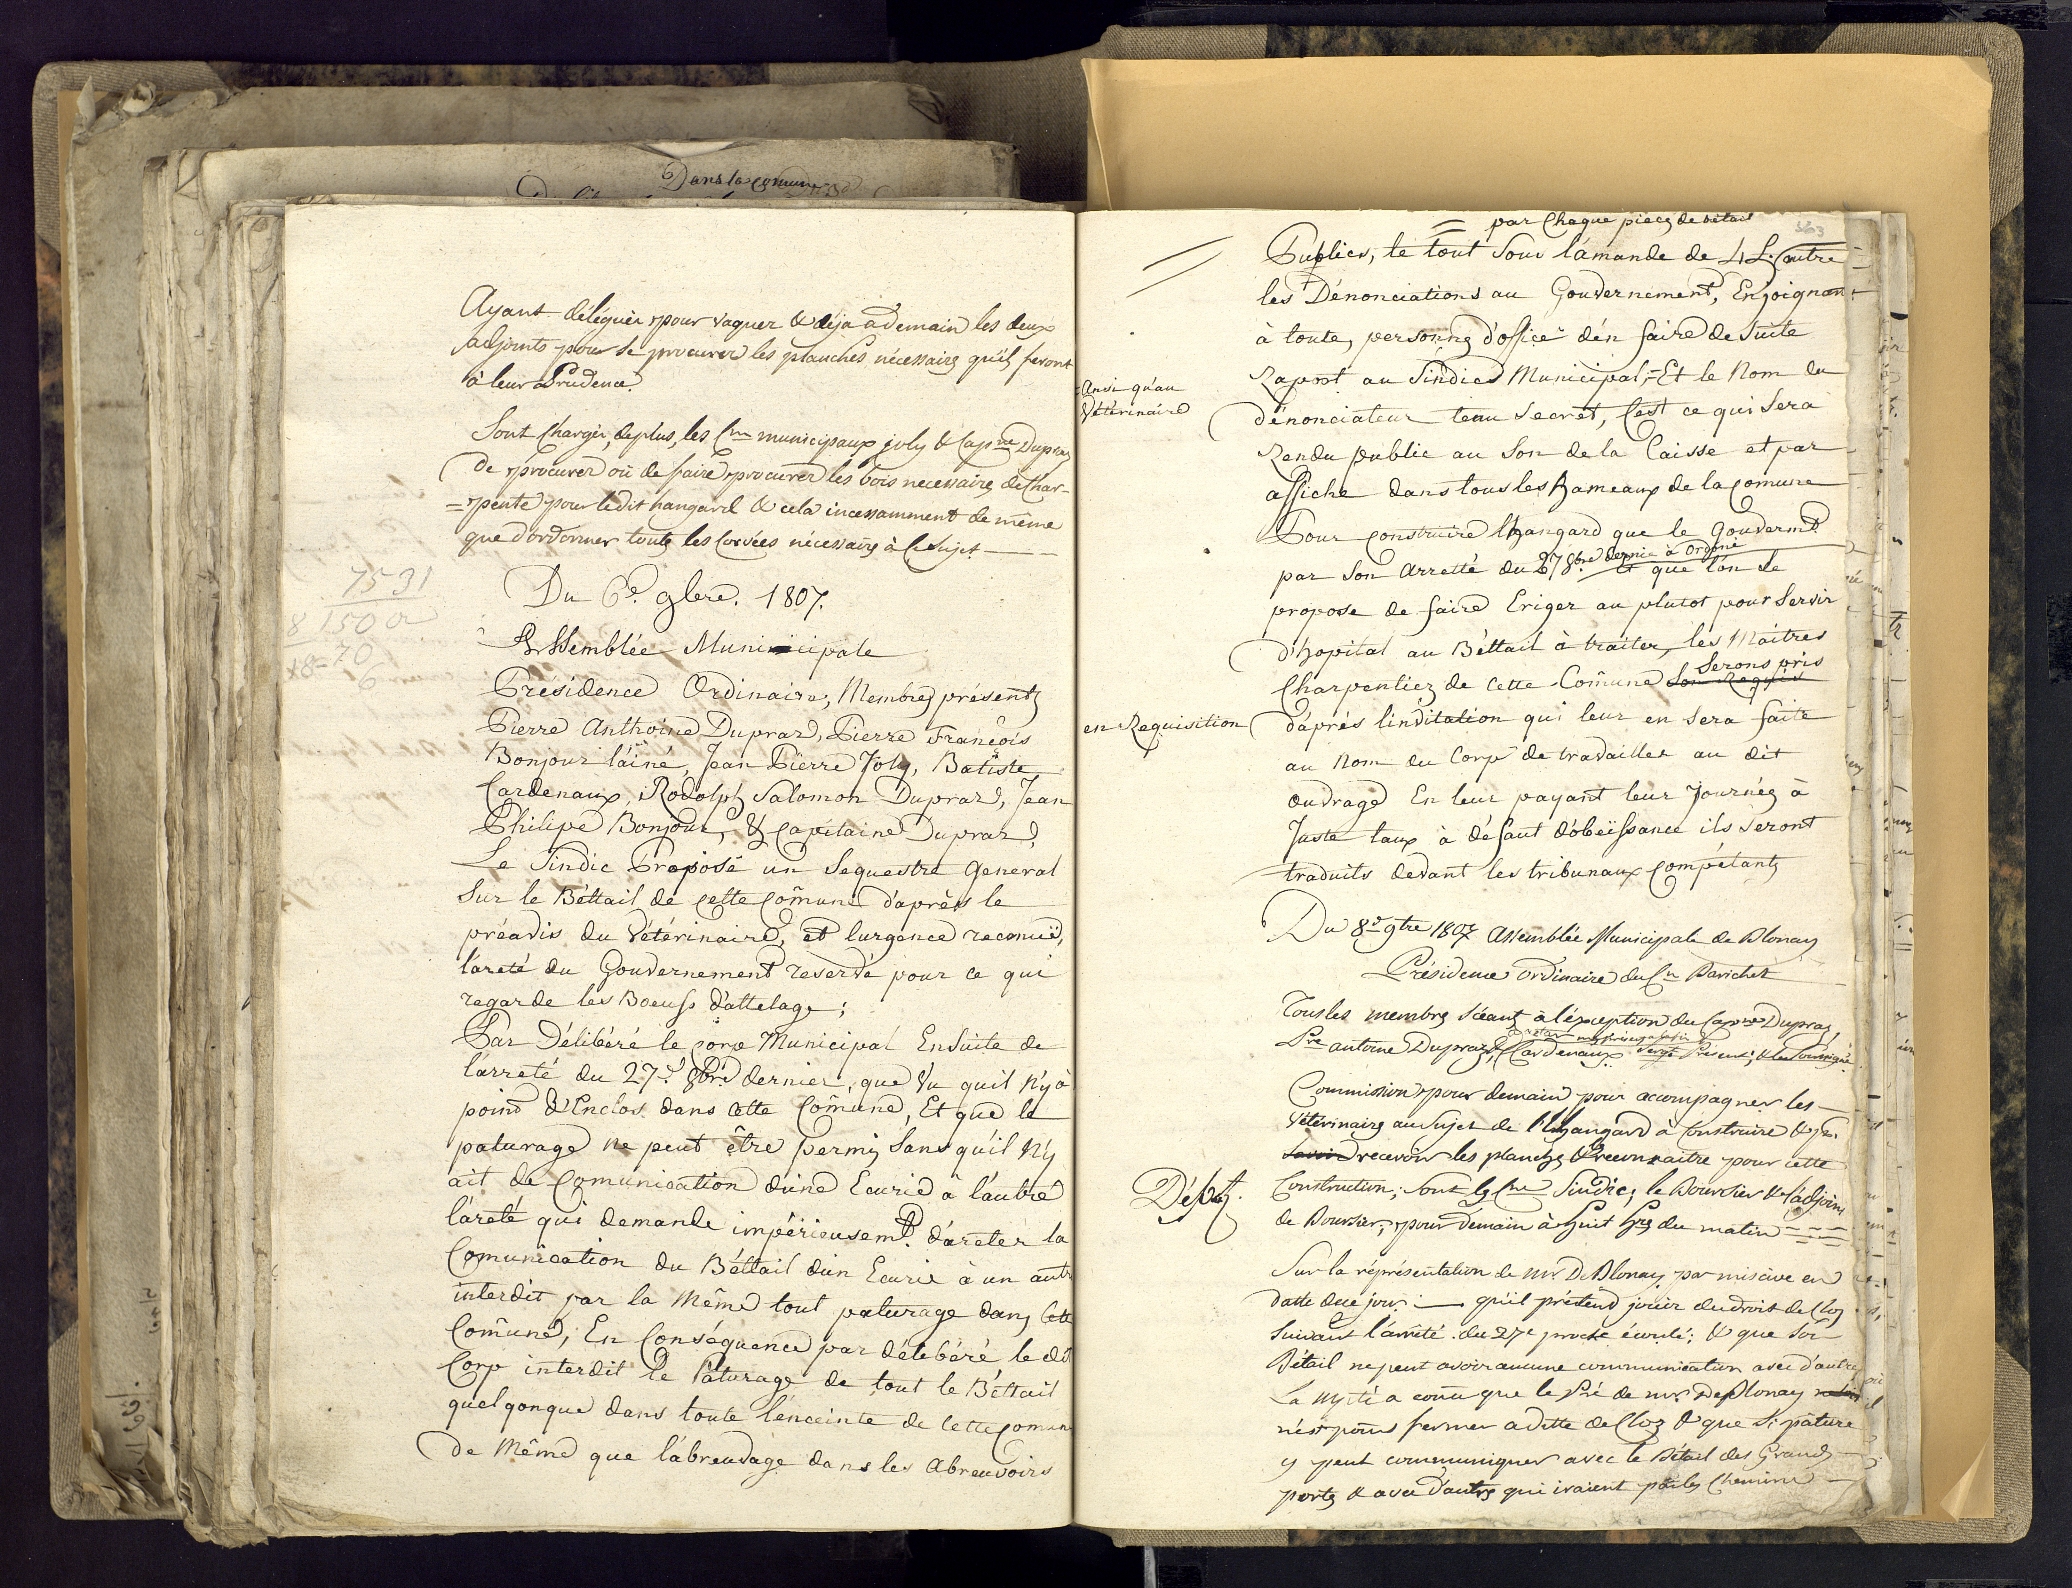 Dans la comune
Ayant déléguér pour vaquer & déja à demain les deux
adjoints pour se procurer les planches nécessaires qu'ils feront
à leur Prudence.
Sont Chargés, de plus, les Cns municipaux joly & Capne Dupraz
de procurer où de faire procurer les bois necessaires de Char-
=pente pour ledit hangard & cela incessamment de même
que d'ordonner toutes les Corvées nécessaires à ce Sujet
7531
1500
70
6
Du 6e. 9bre. 1807.
Assemblée Municipale
Présidence Ordinaire, Membres présents
Pierre Anthoine Dupraz, Pierre François
Bonjour l'ainé, Jean Pierre Joly, Batiste
Cardenaux, Rodolph Salomon Dupraz, Jean
Philipe Bonjour, & Capitaine Dupraz,
Le Sindic Proposé un Sequestre General
Sur le Béttail de cette Comune d'après le
préavis du Vétérinaire, et l'urgence reconuë,
l'areté du Gouvernement reservé pour ce qui
regarde les Boeufs d'attelage;
Par Délibéré le Corp Municipal Ensuite de
l'arreté du 27e. 8bre dernier, que Vu quil n'y a
point d'Enclos dans cette Comune, Et que le
paturage ne peut être permis Sans qu'il n'y
ait de Comunication d'une Ecurie à l'autre
l'areté qui demande impérieusemt. d'arèter la
Comunication du Béttail d'un Ecurie à un autre
interdit par la Même tout paturage dans Cette
Comune, En Conséquence par délibéré le dit
Corp interdit le Paturage de tout le Béttail
quelqonque dans toute l'enceinte de cette Comune
de Même que l'abreuvage dans les Abreuvoirs
563
par Chaque pieces de bétail
Publics, le tout Sous l'amande de 4 L. outre
les Dénonciations au Gouvernement, Enjoignant
à toutes personnes d'office d'en faire de Suite
Raport au Sindics Municipal, Et le Nom du
Ansi qu'au
Vétérinaire
dénonciateur tenu Secret, C'est ce qui Sera
Rendu public au Son de la Caisse et par
affiche dans tous les hameaux de la Comune
Pour construire l'hangard que le Gouvermt
par Son Arretté du 27 8bre dernie à Ordoné
Et que l'on se
propose de faire Eriger au plutot pour Servir
d'hopital au Béttail à traiter, les Maitres
Charpentiez de cette Comune Son Requis Serons pris
en Requisition
d'après l'invitation qui leur en sera faite
au Nom du Corp de travailler au dit
ouvrage En leur payant leur Journés à
Juste taux à défaut d'obeïssance ils Seront
traduits devant les tribunaux Compétants
Du 8e 9bre 1807 Assemblée Municipale de Blonay
Présidence Ordinaire du Cn Barichet
Tous les membres Séants à l'éxception du Capne Dupraz,
Pre antoine Dupraz, Cardenaux Présent, & les Soussigné.
Commission pour demain pour acompagner les
Vétérinaires au Sujet de l'hangard à Construire & pr.
recevoir les planches & reconnaitre pour cette
Dépt.
Construction; sont les Cns Sindic, le Boursier & l'adjoint
de Boursier, pour demain à huit hres du matin
Sur la réprésentation de mr. De Blonay par missive en
datte de ce jour: qu'il prétend jouir du droit de Clos
Suivant l'arrêté du 27e proche écoulé; & que Son
Bétail ne peut avoir aucune communication avec d'autre
La Mpté a connu que le Pré de mr. De Blonay
n'est point fermer à ditte de Clos & que Si pâture
y peut communiquer avec le Bétail des Grands
portes & avec d'autres qui iraient par les Chemins